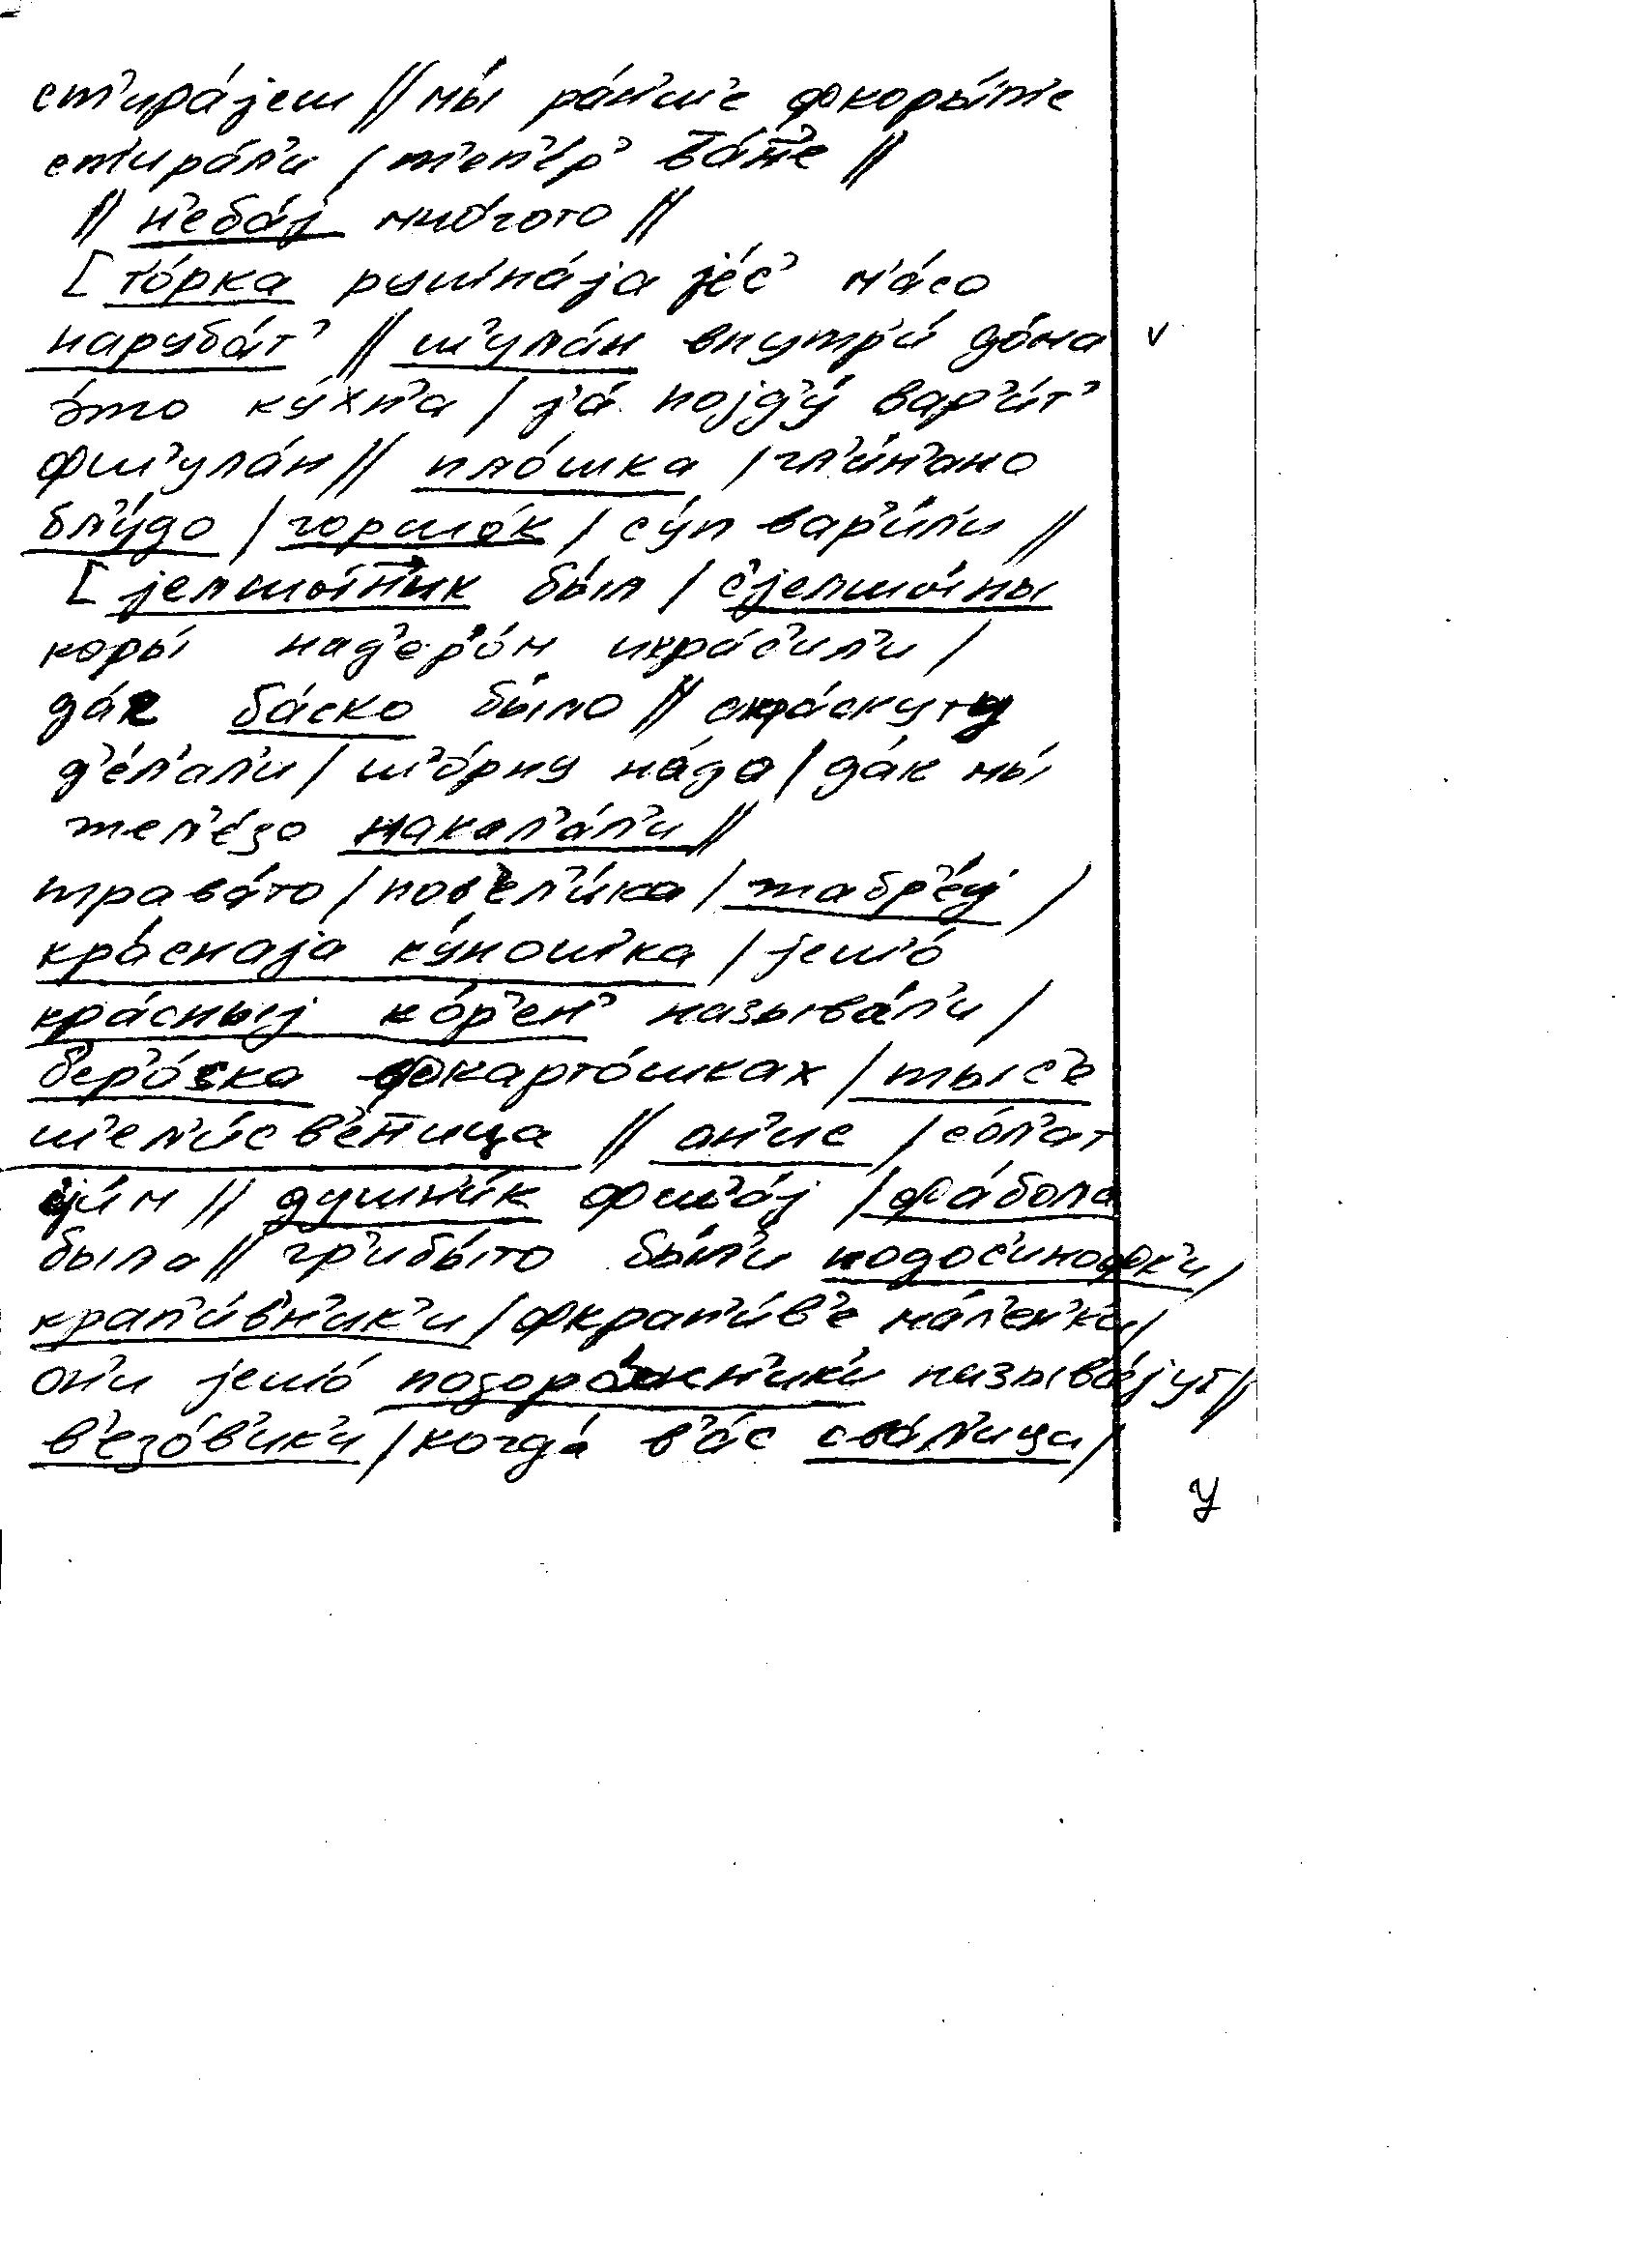 ст'ира́јеш // мы́ ра́н'ш'е фкоры́т'е
ст'ира́л'и / т'еп'е́р' ва́н̄'е //
// н'еба́ј мно́гото //
[ т'о́рка руш'на́ја је́с' м'а́со
наруба́т' // ш'ула́н внутр'и́ до́ма v
э́то ку́хн'а / ја́ појд'у́ вар'и́т'
фш'ула́н // пло́шка / гл'и́н'ано
бл'у́до / горшо́к / су́п вар'и́л'и //
[ јелшы́н̄'ик бы́л / с'јелшы́ны
коры́ над'ер'о́м икра́с'ил'и /
да́к ба́ско бы́ло // скра́скуту
д'е́л'ал'и / ш'о́рну на́до / да́к мы́
жел'е́зо накал'а́л'и //
трава́то / пов'ел'и́ка / жабр'е́ј /
кра́снаја ку́мош'ка / јеш'о́
кра́сныј ко́р'ен' называ́л'и /
б'ер'о́ска фкарто́шках / тыс'е
ш'ел'и́св'ен̄ица // ан'ис / со́л'ат
јим // душн'и́к фш'а́ј / фа́бола
была // гр'ибы́то бы́л'и подос'инофк'и /
крап'и́вн'ик'и / фкрап'и́в'е ма́л'ен'ки /
он'и јеш'о́ подоро́жн'ики называ́јут //
в'езо́вик'и / когда́ в'а́с свал'ица /
У